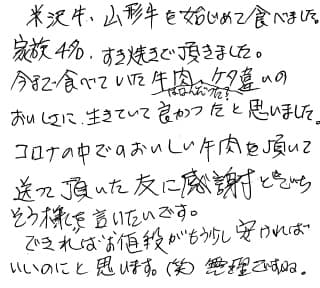 米沢牛、山形牛を始じめて食べました。
家族4名、すき焼きで頂きました。
今まで食べていた牛肉、ケタ違いの
はなんだった?
おいしさに、生きていて良かつたと思いました。
コロナの中でのおいしい牛肉を頂いて
送って頂いた友に感謝と
を言いたいです。
できればお値段がもう少し安ければ
いいのにと思います。(笑)無理ですね。